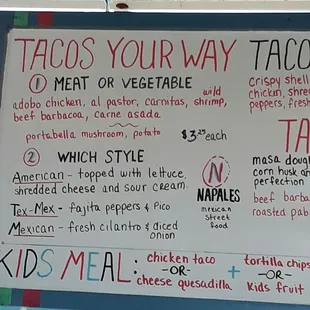 TACOS YOUR WAY
1 MEAT OR VEGETABLE
adobo chicken, al pastor, carnitas, wild shrimp,
beef barbacoa, carne asada
portabella mushroom, potato $3.25 each
2 WHICH STYLE
American - topped with lettuce,
shredded cheese and sour cream
Tex-Mex - fajita peppers & Pico
Mexican - fresh cilantro & diced
onion
N
NAPALES
mexican
street
food
TACO
crispy shell
chicken, shre
peppers, fresh
TA
masa doug
corn husk an
perfection
beef barba
roasted pab
KIDS MEAL: chicken taco
-OR-
cheese quesadilla
+ tortilla chips
-OR-
kids fruit